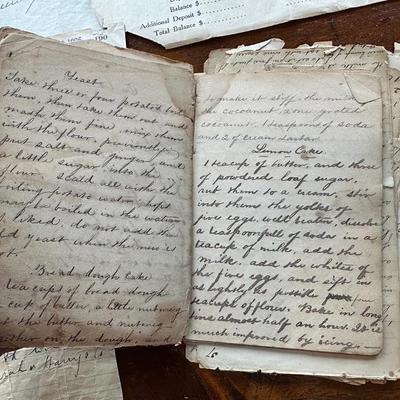 Balance $
Additional Deposit $
Total Balance $
190
Yeast
Take three or four potatoes boil
them, then take them out and
mash them fine mix them
with the flour, previously
put salt and ginger, and
a little sugar into the
flour. Scald all with the
boiling potato water, hops
may be boiled in the water
if liked, do not add the
old yeast when the new is
hot.
Bread dough Cake
tea cups of bread dough
cup of butter, a little nutmeg
the butter and nutmeg
on the dough, and
to make it stiff, the
the cocoanut, one grated
cocoanut, 1 teaspoon of soda
and 2 of cream tartar
Lemon Cake
1 teacup of butter, and three
of powdered loaf sugar,
rub them to a cream, stir
into them the yolks of
five eggs, well beaten, dissolve
a teaspoonfull of soda in a
teacup of milk, add the
milk, add the whites of
the five eggs, and sift in
as lightly as possible four
teacups of flour. Bake in long
tins almost half an hour. It is
much improved by icing.